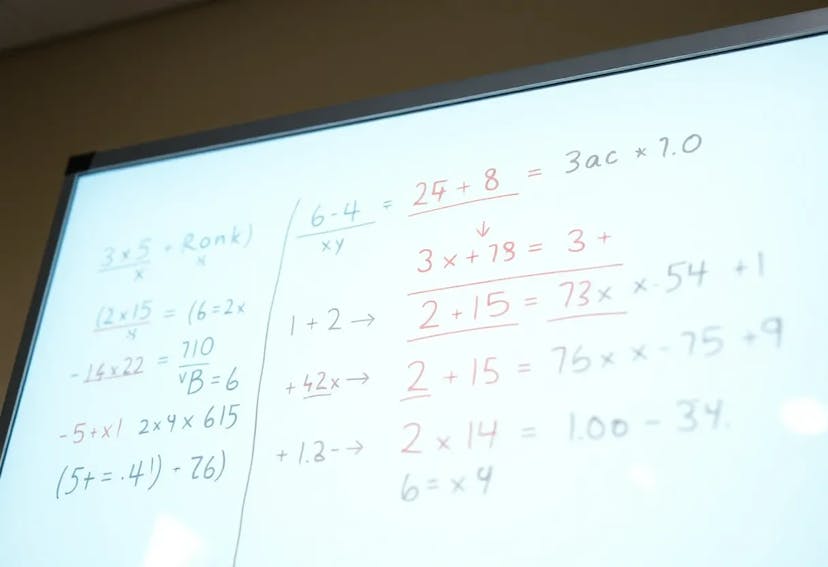 3 x 5
x
(2x15 = (6=2x
x
-14x22 = 710
B=6
-5+x1 2x4x615
(5+=.4') - 76)
6-4 = 25+8 = 3ac * 7.0
xy
↓
3x+78 = 3+
1+2→ 2+15 = 73x x-54 +1
+42x→ 2+15 = 76x x-75 +9
+1.3-→ 2x14 = 1.00 - 34.
6=x4